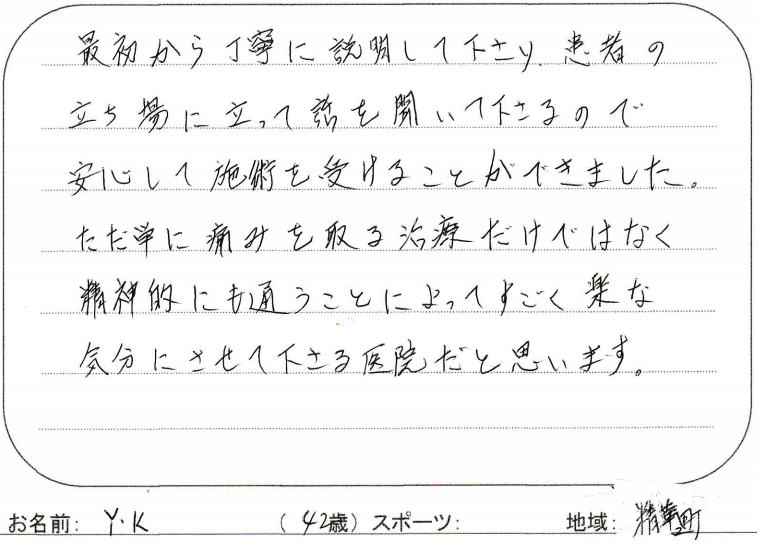 最初から丁寧に説明して下さり、患者の
立ち場に立って話を聞いて下さるので
安心して施術を受けることができました。
ただ単に痛みを取る治療だけではなく
精神的にも通うことによってすごく楽な
気分にさせて下さる医院だと思います。
お名前: Y.K (42歳) スポーツ: 地域: 精華町